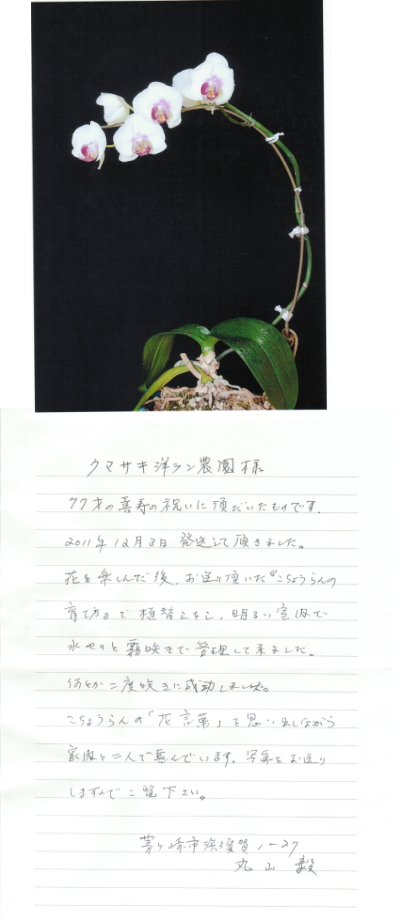 クマサキ洋ラン農園様
77才の喜寿の祝いに頂だいたものです.
2011年12月3日 発送して頂きました。
花を楽しんだ後, お送り頂いた『こちょうらんの
育て方』で植替えをし, 明るい室内で
水やりと霧吹きで管理して来ました。
何とか二度咲きに成功しました。
こちょうらんの「花言葉」を思い出しながら
家内と二人で喜んでいます. 写真をお送り
しますのでご覧下さい。
茅ヶ崎市浜須賀 1-27
丸山 毅